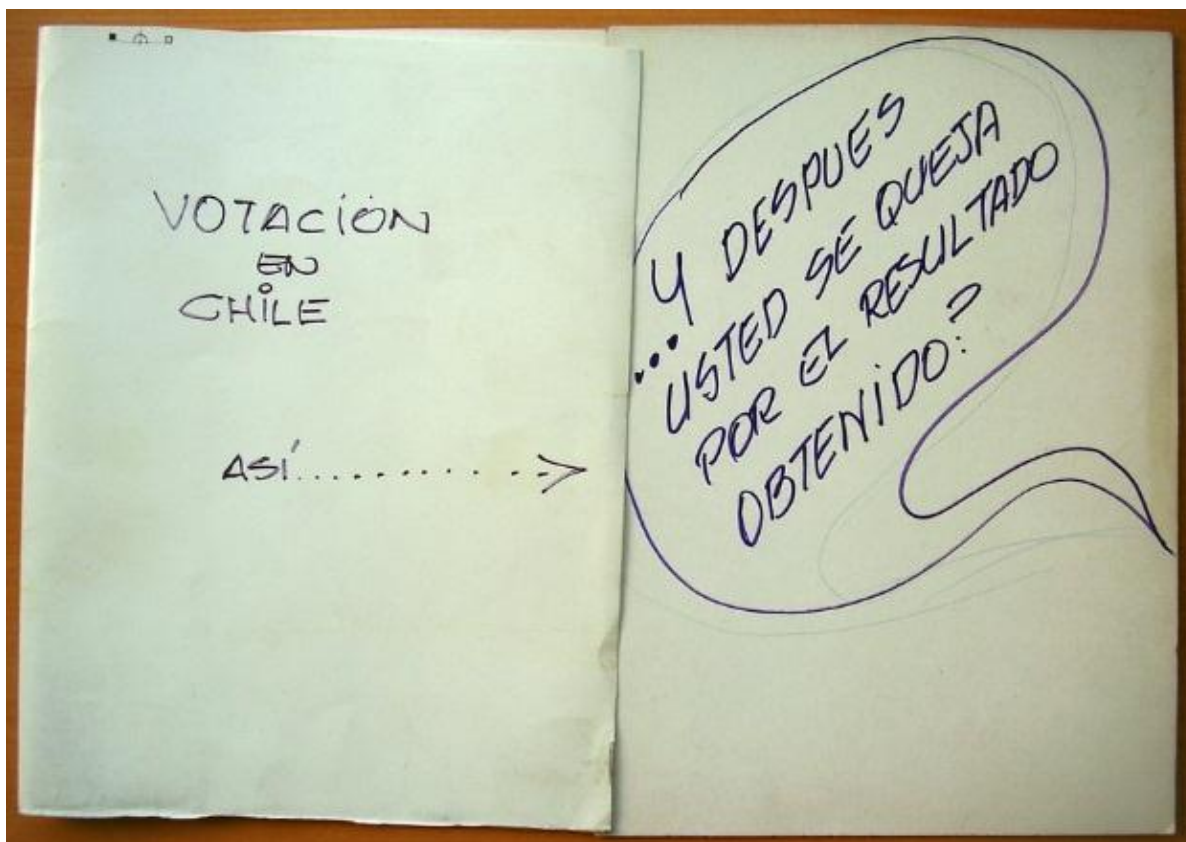 VOTACIÓN
EN
CHILE
ASÍ.............>
...Y DESPUES
USTED SE QUEJA
POR EL RESULTADO
OBTENIDO?